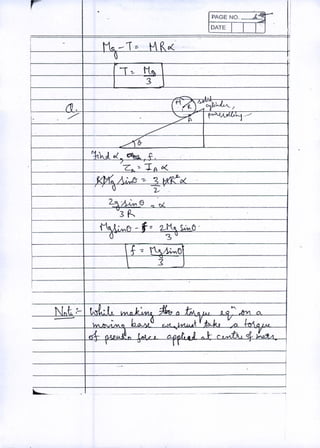 PAGE NO.
DATE
Mg - T = MRα
T = Mg/3
Q.
M, R solid cylinder,
pure rolling
A
θ
Find α, f.
τ_A = I_A α
RMg sinθ = 3/2 MR²α
2g sinθ / 3R = α
Mg sinθ - f = 2Mg sinθ / 3
f = Mg sinθ / 3
Note :- While making a torque eqⁿ on a
moving base we must take a torque
of pseudo force applied at centre of mass.